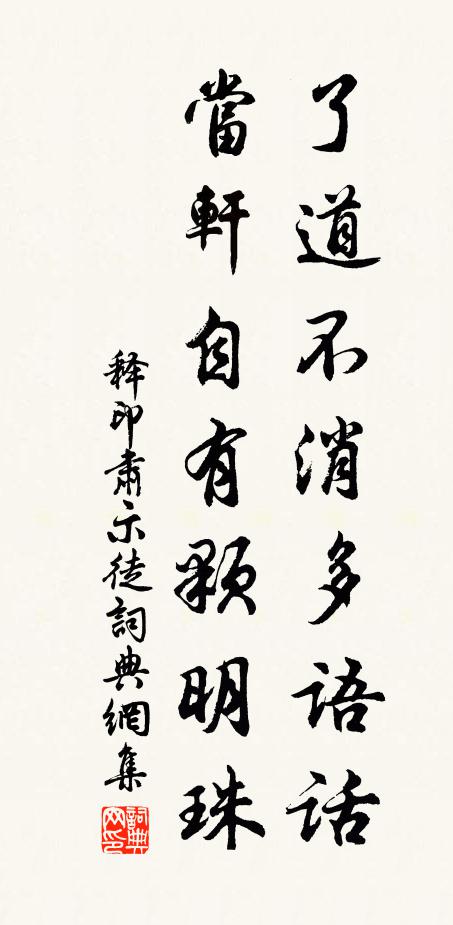 了道不消多語話
當軒自有顆明珠
释印肅示徒詞典網集
詞典网印